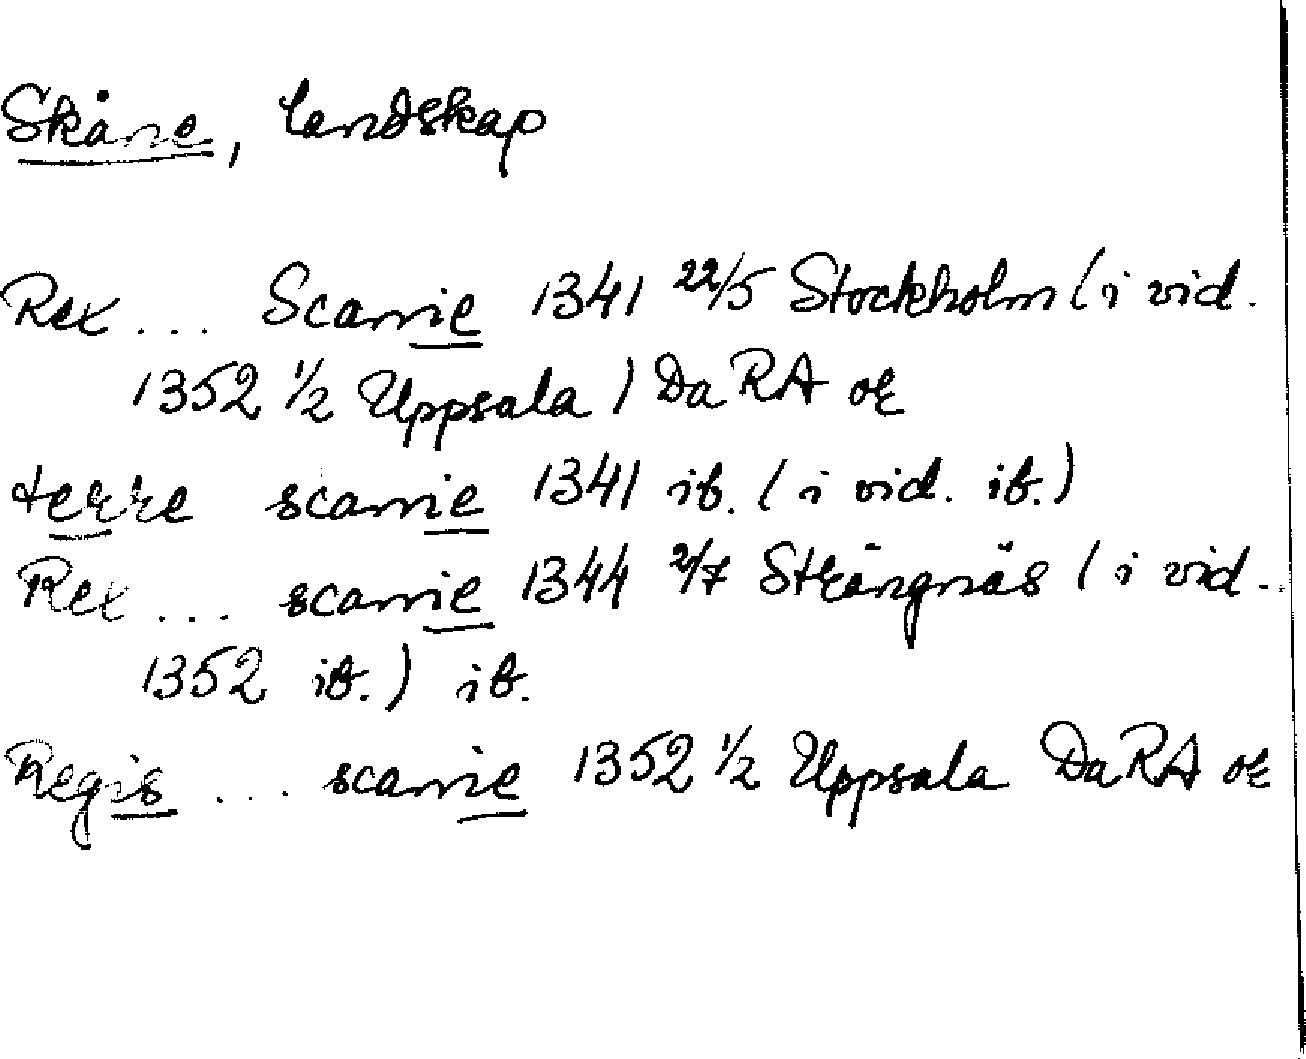 Skåne, landskap
Rex ... Scanie 1341 22/5 Stockholm (i vid.
1352 1/2 Uppsala) DaRA or
terre scanie 1341 ib. (i vid. ib.)
Rex ... scanie 1344 2/7 Strängnäs (i vid.
1352 ib.) ib.
Regis ... scanie 1352 1/2 Uppsala DaRA or